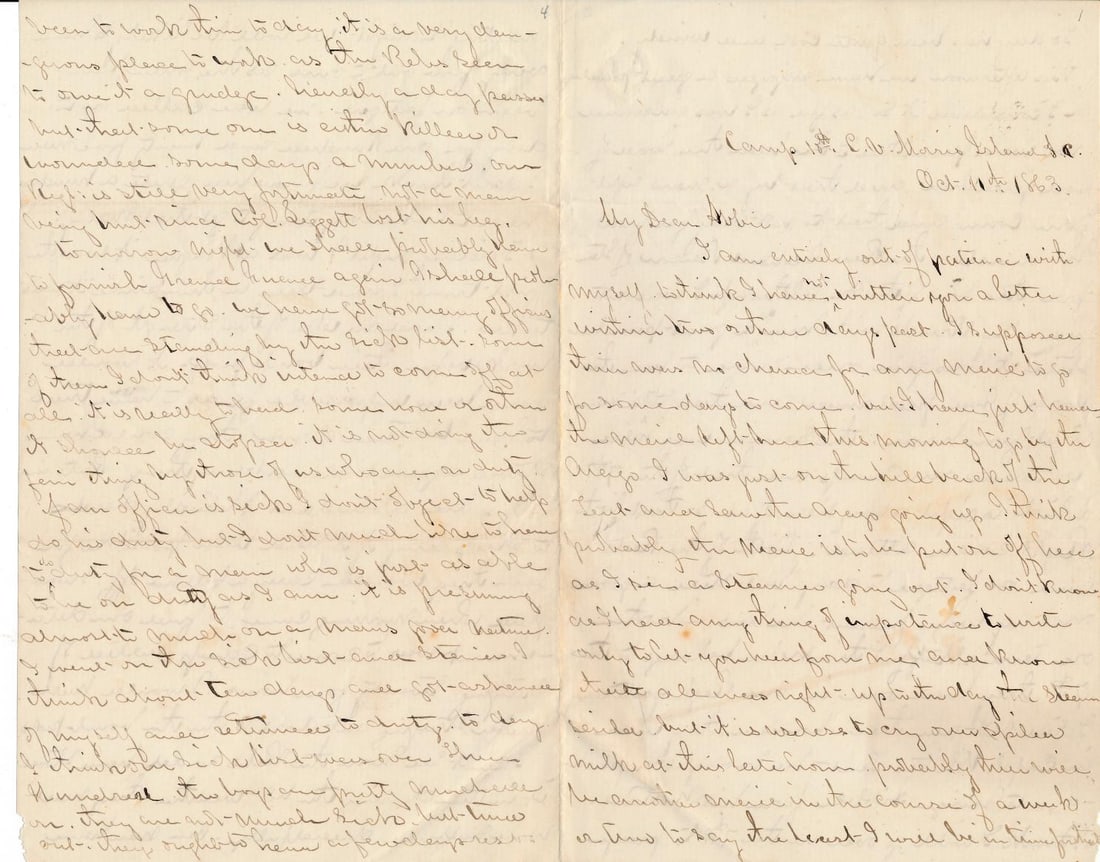 4
been to work him to day. it is a very dan-
-gerous place to work as the Rebs seem
to owe it a grudge. hendly a day passes
but that some one is either killed or
wounded some days a number. our
Regt. is still very fortunate not a man
being hurt since Col. Leggett lost his leg.
tomorrow night we shall probably have
to furnish Grand Guard again I shall prob-
-ably have to go. we have got so many officers
that are standing by the sick list. some
of them I dont think intend to come off at
all. it is really to hard. some how or other
it should be stoped. it is not doing the
fair thing by those of us who are on duty.
if an officer is sick I dont object to help
do his duty but I dont much like to have
to do duty for a man who is just as able
to be on duty as I am. it is presuming
almost to much on a mans good nature.
I went on the sick list and staied I
think about ten days and got ashamed
of myself and returned to duty. to day
I think our sick list was over three
Hundred the boys are pretty much all
on. they are not much sick but tired
out. they ought to have a few days rest.
1
Camp 10th. C.V. Morris Island S.C.
Oct. 11th 1863.
My Dear Abbie
I am entirely out of patience with
myself to think I have not written you a letter
within two or three days past. I supposed
there was no chance for any Mail to go
for some days to come. but I have just heard
the mail left here this morning to go by the
Arago. I was just on the hill back of the
Tent and saw the Arago going up I think
probably the Mail is to be put on off here
as I see a Steamer going out. I dont know
as I have any thing of importance to write
only to let you hear from me and know
that all was right up to the day the Steam
sailed but it is useless to cry over spilled
milk at this late hour. probably there will
be another Mail in the course of a week
or two to say the least I will be in time for that